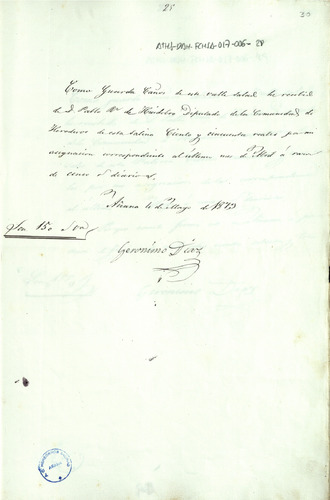 25
30
ATHA-DAH-FCHSA-017-006-28
Como Guarda Caños de este valle salado he recibido
de D. Pablo Mª de Heredia Diputado de la Comunidad de
Herederos de esta Salina Ciento y cincuenta reales por mi
asignacion correspondiente al último mes de Abril á razon
de cinco rs diarios
Añana 1º de Mayo de 1873
Son 150 Rvn
Geronimo Diaz